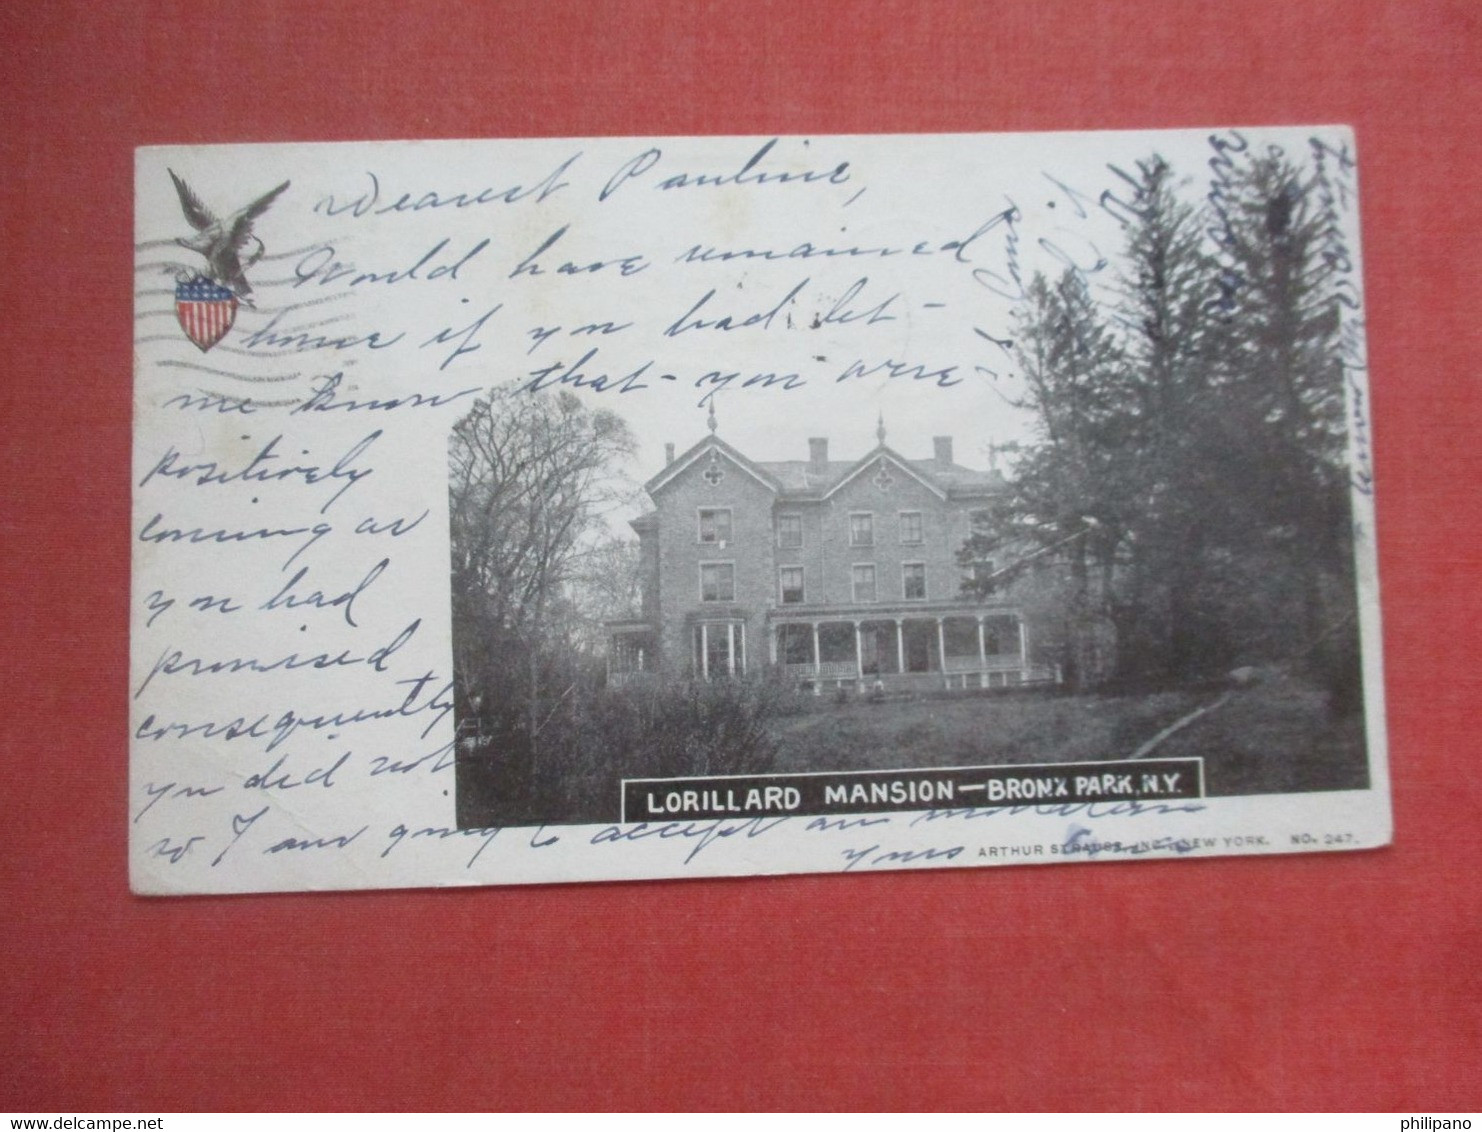 Dearest Pauline,
Would have remained
home if you had let
me know that you were
positively
coming as
you had
promised
consequently
you did not
so I am going to accept an invitation
yours
LORILLARD MANSION—BRONX PARK, N.Y.
ARTHUR STRAUSS, INC., NEW YORK. NO. 247.
philipano